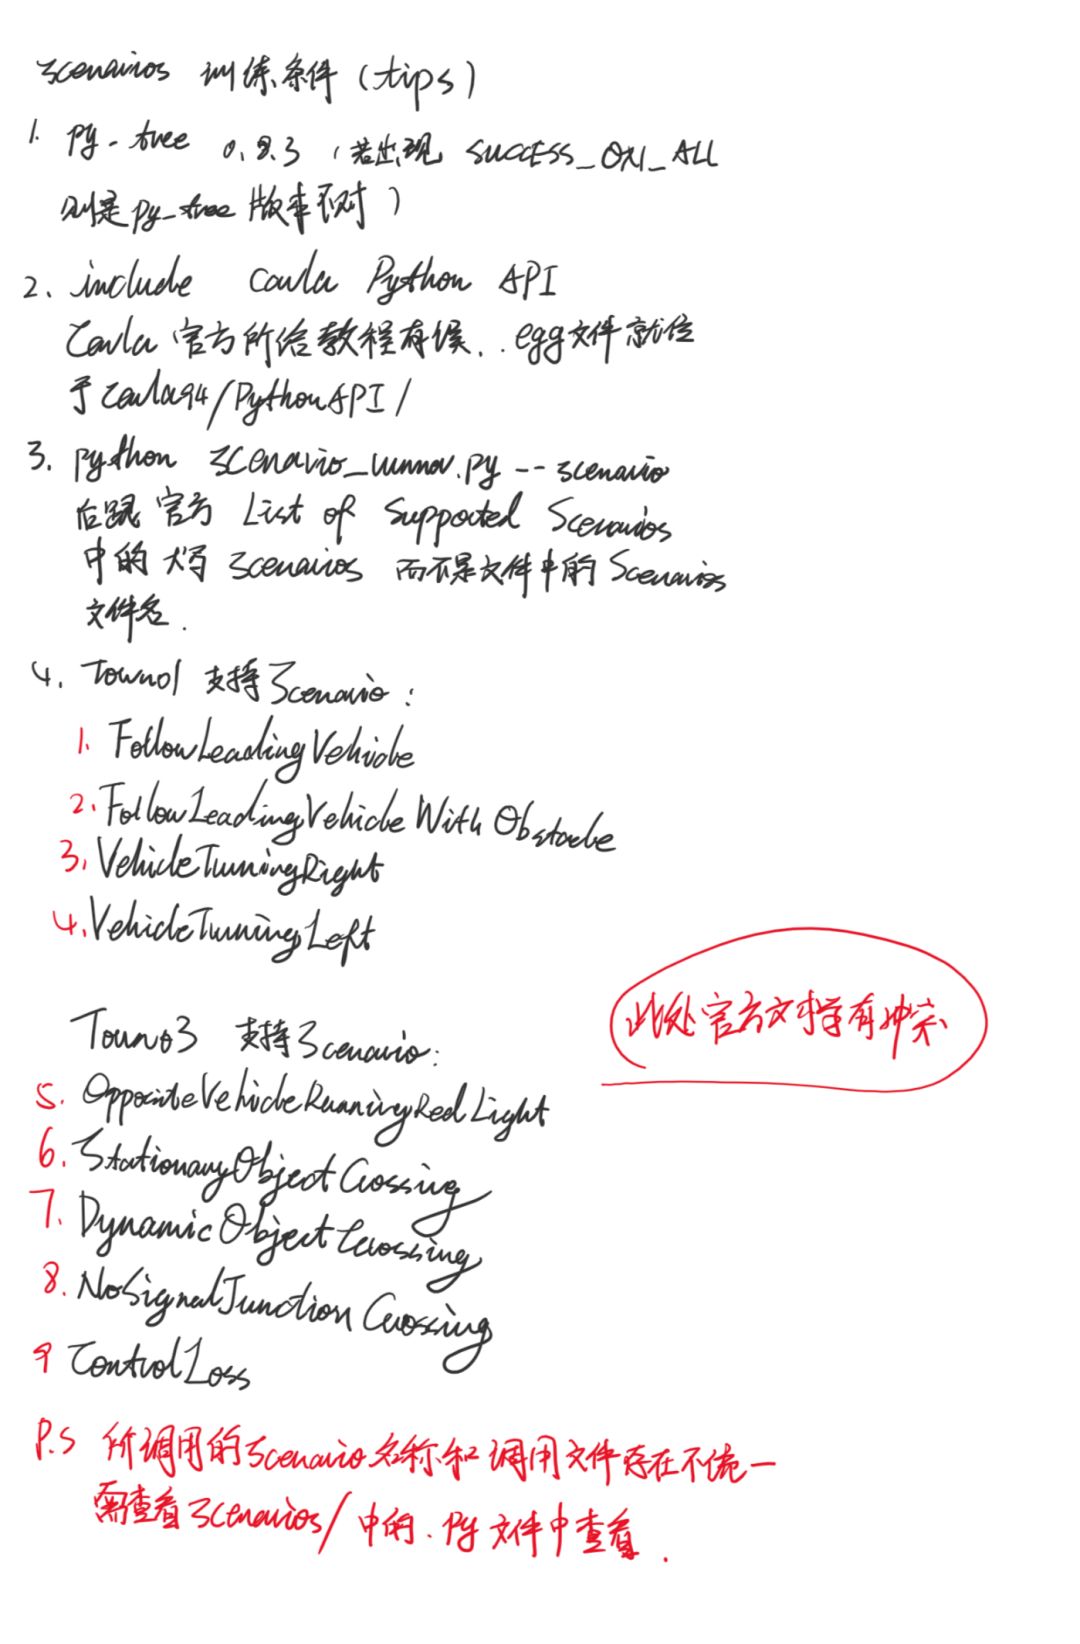 Scenarios 训练条件 (tips)
1. py-tree 0.8.3 (若出现 SUCCESS_ON_ALL
则是py_tree版本不对)
2. include Carla Python API
Carla 官方所给教程有误. .egg文件就位
于Carla94/PythonAPI/
3. python scenario_runner.py --scenario
后跟 官方 List of Supported Scenarios
中的 大写 Scenarios 而不是文件中的 Scenarios
文件名.
4. Town01 支持 Scenario:
1. FollowLeadingVehicle
2. FollowLeadingVehicleWithObstacle
3. VehicleTurningRight
4. VehicleTurningLeft
此处官方文档有冲突
Town03 支持 Scenario:
5. OppositeVehicleRunningRedLight
6. StationaryObjectCrossing
7. DynamicObjectCrossing
8. NoSignalJunctionCrossing
9 ControlLoss
P.S 所调用的Scenario名称和调用文件存在不统一
需查看Scenarios/中的.py文件中查看.